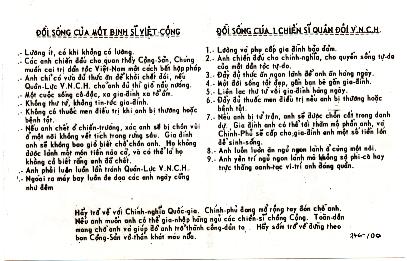 ĐỜI SỐNG CỦA MỘT BINH SĨ VIỆT-CỘNG
- Lương ít, có khi không có lương.
- Các anh chiến đấu cho quan thầy Cộng-Sản, Chúng
muốn cai trị dân tộc Việt-Nam một cách bất hợp pháp
- Anh chỉ có vừa đủ thức ăn để khỏi chết đói, nếu
Quân-Lực V.N.C.H. cho anh đủ thì giờ nấu nướng.
- Một cuộc sống cô-độc, xa gia-đình xa tổ ấm.
- Không thư từ, không tin-tức gia-đình.
- Không có thuốc men điều trị khi anh bị thương hoặc
bệnh tật.
- Nếu anh chết ở chiến-trường, xác anh sẽ bị chôn vùi
ở một nơi không vết tích trong rừng sâu. Gia đình
anh sẽ không bao giờ biết chỗ chôn anh. Họ không
được lãnh một món tiền nào cả, và có thể là họ
không cả biết rằng anh đã chết.
- Anh phải luôn luôn lẩn tránh Quân-Lực V.N.C.H.
- Ngoài ra máy bay luôn đe dọa các anh ngày cũng
như đêm
ĐỜI SỐNG CỦA 1 CHIẾN SĨ QUÂN ĐỘI V.N.C.H.
1- Lương và phụ cấp gia đình bảo đảm.
2- Anh chiến đấu cho chính-nghĩa, cho quyền sống tự-do
của một dân tộc tự-do.
3- Đầy đủ thức ăn ngon lành để anh ăn hàng ngày.
4- Một đời sống tốt đẹp, gần bạn bè gần gia-đình.
5- Liên lạc thư từ với gia-đình hàng ngày.
6- Đầy đủ thuốc men điều trị nếu anh bị thương hoặc
bệnh tật.
7- Nếu anh bị tử trận, anh sẽ được chôn cất trong danh
dự. Gia đình anh có thể tới thăm mộ phần anh, và
Chính-Phủ sẽ cấp cho gia-đình anh một số tiền lớn
để sinh-sống.
8- Anh luôn luôn ăn ngủ ngon lành ở cùng một nơi.
9- Anh yên trí ngủ ngon lành mà không sợ phi-cơ hay
trực thăng oanh-tạc vị-trí anh đóng quân.
Hãy trở về với Chính-nghĩa Quốc-gia. Chính-phủ đang mở rộng tay đón chờ anh.
Nếu anh muốn anh có thể gia-nhập hàng ngũ các chiến-sĩ chống Cộng. Toàn-dân
mong chờ anh và giúp đỡ anh trở thành công-dân tốt. Hãy sớm trở về đừng theo
bọn Cộng-Sản vô-thần khát máu nữa.